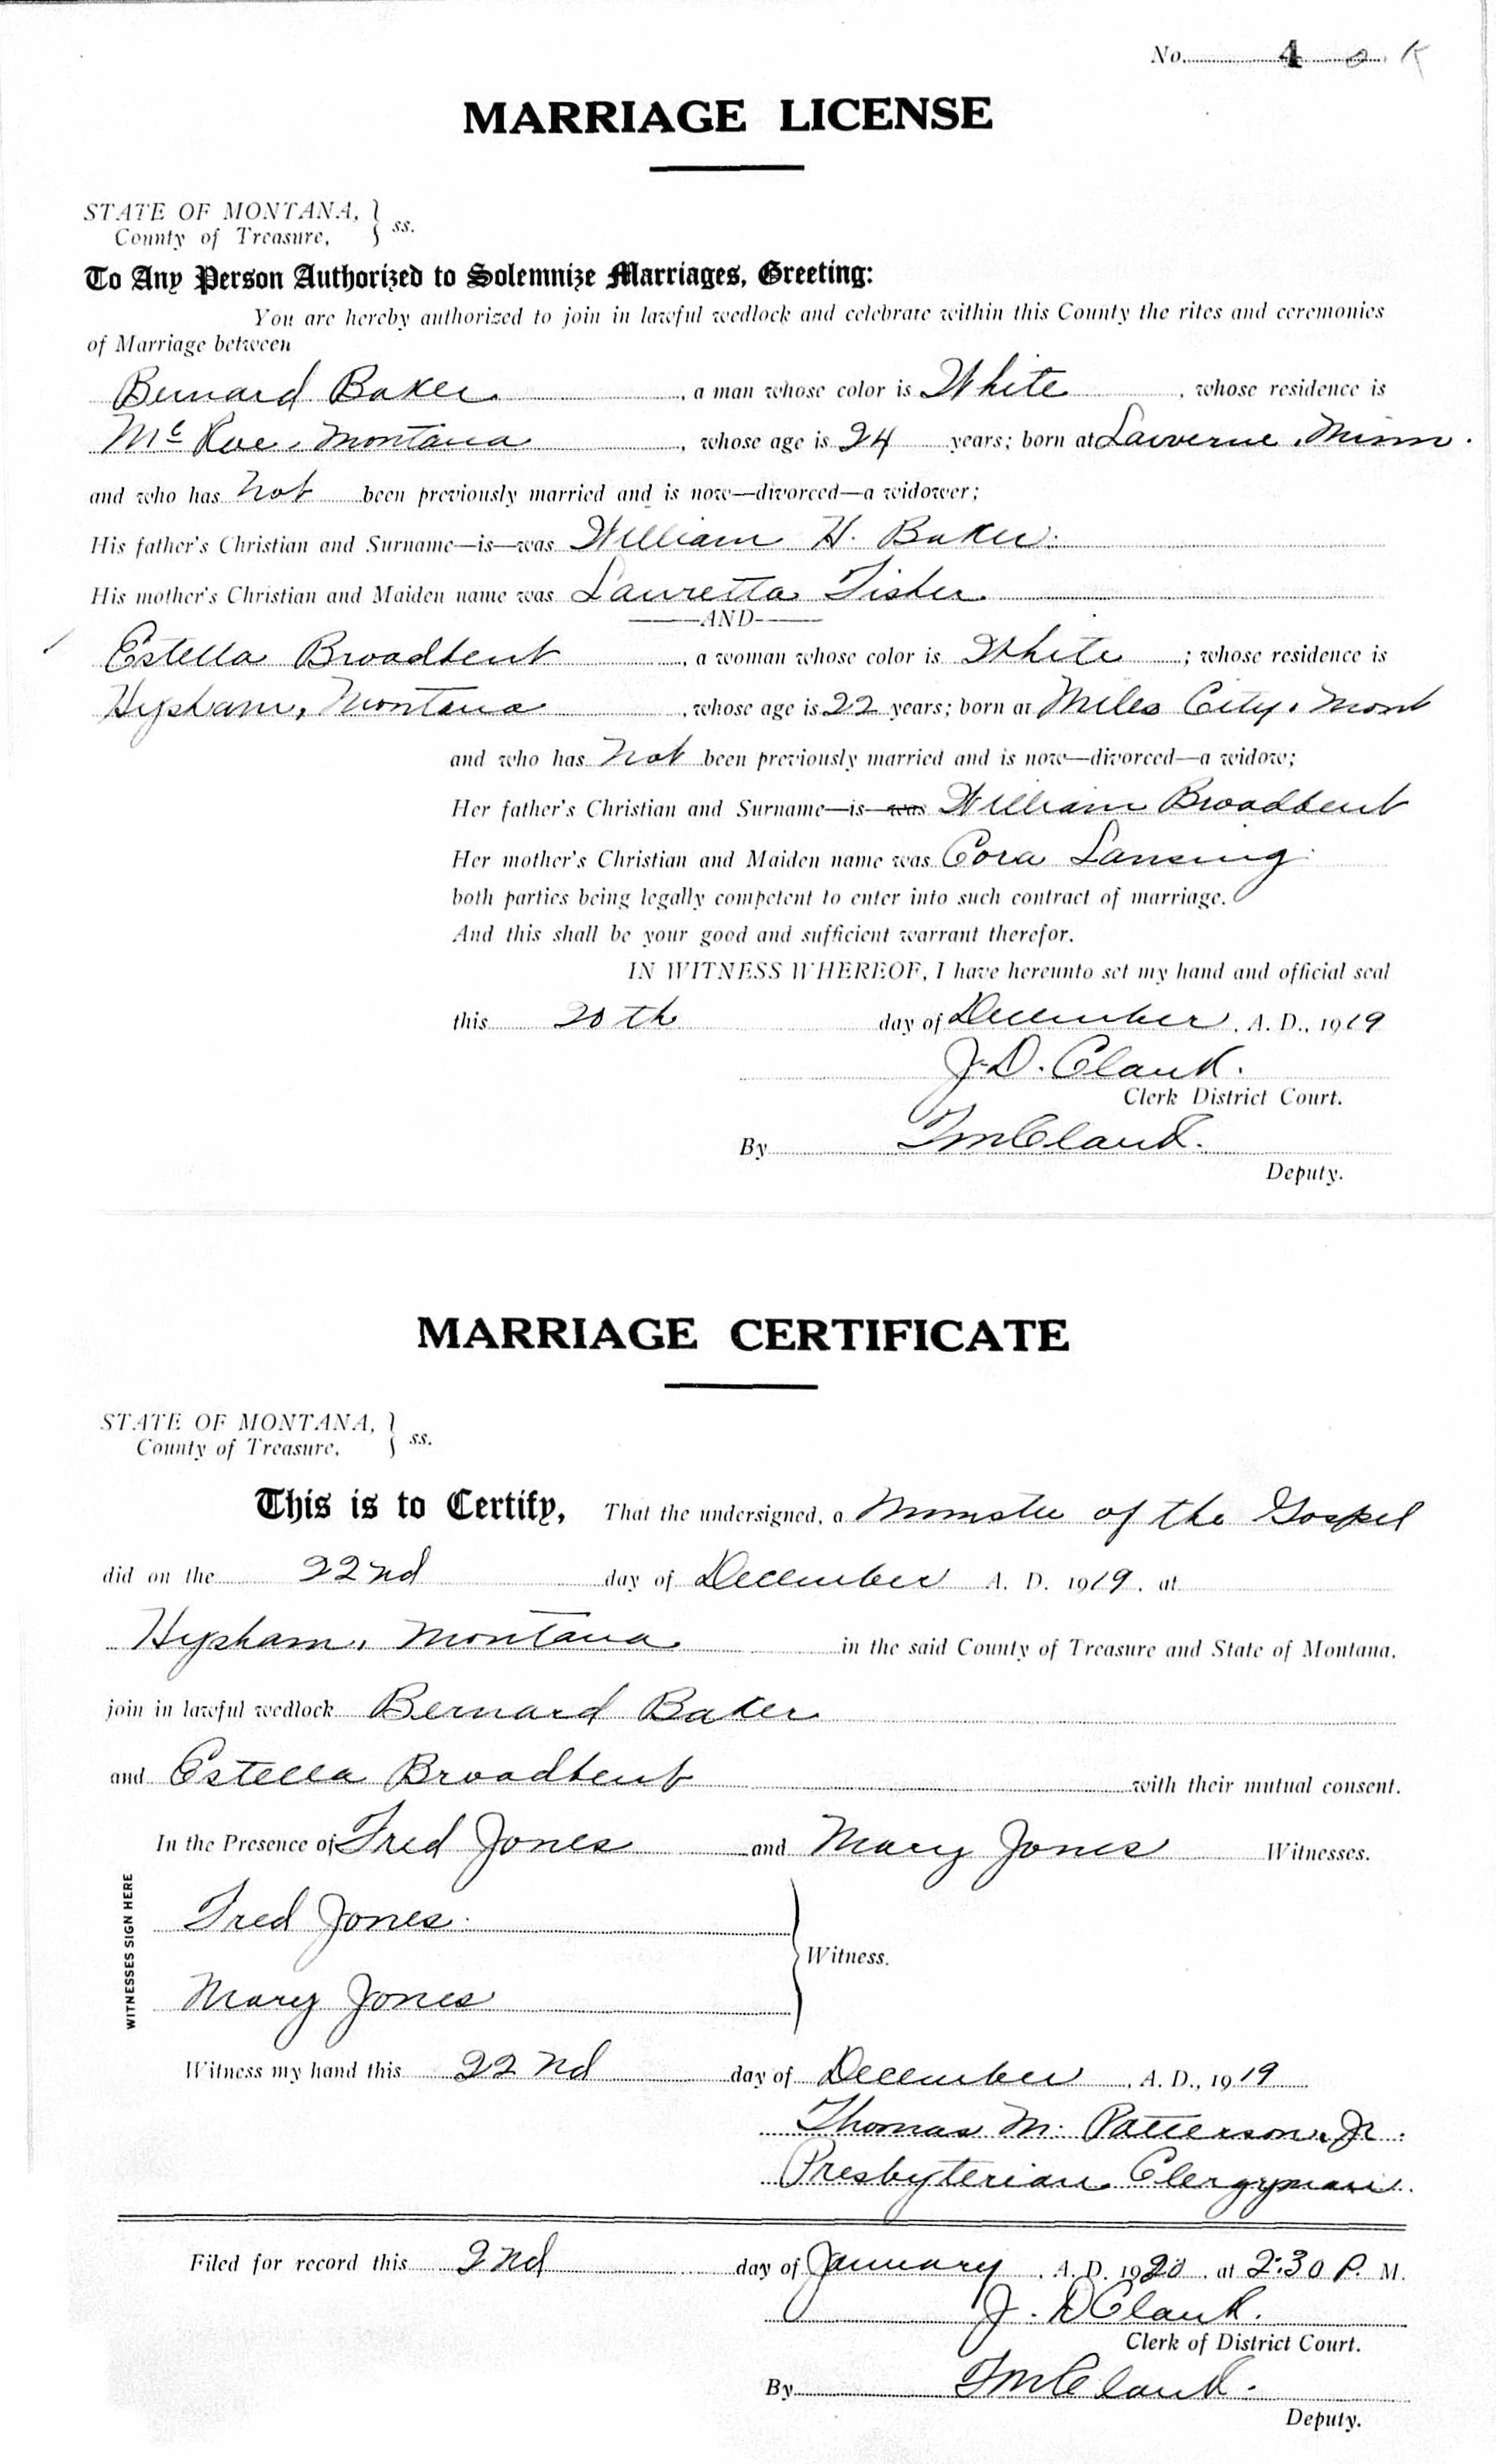 No. 4 OK
MARRIAGE LICENSE
STATE OF MONTANA, } ss.
County of Treasure,
To Any Person Authorized to Solemnize Marriages, Greeting:
You are hereby authorized to join in lawful wedlock and celebrate within this County the rites and ceremonies
of Marriage between
Bernard Baker, a man whose color is White, whose residence is
Mc Rae, Montana, whose age is 24 years; born at Laverne, Minn.
and who has not been previously married and is now—divorced—a widower;
His father's Christian and Surname—is—was William H. Baker.
His mother's Christian and Maiden name was Lauretta Fisher
—AND—
Estella Broadbent, a woman whose color is White; whose residence is
Hysham, Montana, whose age is 22 years; born at Miles City, Mont
and who has not been previously married and is now—divorced—a widow;
Her father's Christian and Surname—is—was William Broadbent
Her mother's Christian and Maiden name was Cora Lansing
both parties being legally competent to enter into such contract of marriage.
And this shall be your good and sufficient warrant therefor.
IN WITNESS WHEREOF, I have hereunto set my hand and official seal
this 20th day of December, A. D., 1919
J. D. Clark.
Clerk District Court.
By Clark.
Deputy.
MARRIAGE CERTIFICATE
STATE OF MONTANA, } ss.
County of Treasure,
This is to Certify, That the undersigned, a Minister of the Gospel
did on the 22nd day of December A. D. 1919, at
Hysham, Montana in the said County of Treasure and State of Montana,
join in lawful wedlock Bernard Baker
and Estella Broadbent with their mutual consent.
In the Presence of Fred Jones and Mary Jones Witnesses.
WITNESSES SIGN HERE
Fred Jones.
Witness.
Mary Jones
Witness my hand this 22nd day of December, A. D., 1919
Thomas M. Patterson, Jr.
Presbyterian Clergyman.
Filed for record this 2nd day of January, A. D. 1920, at 2:30 P. M.
J. D Clark.
Clerk of District Court.
By Clark.
Deputy.